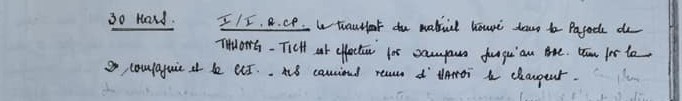 30 Mars. I/I. R.C.P. Le transport du matériel trouvé dans la Pagode de
THUONG-TICH est effectué par sampans jusqu'au BAC. par la
2e compagnie et la CCI. - des camions venus d'HANOI le chargent.